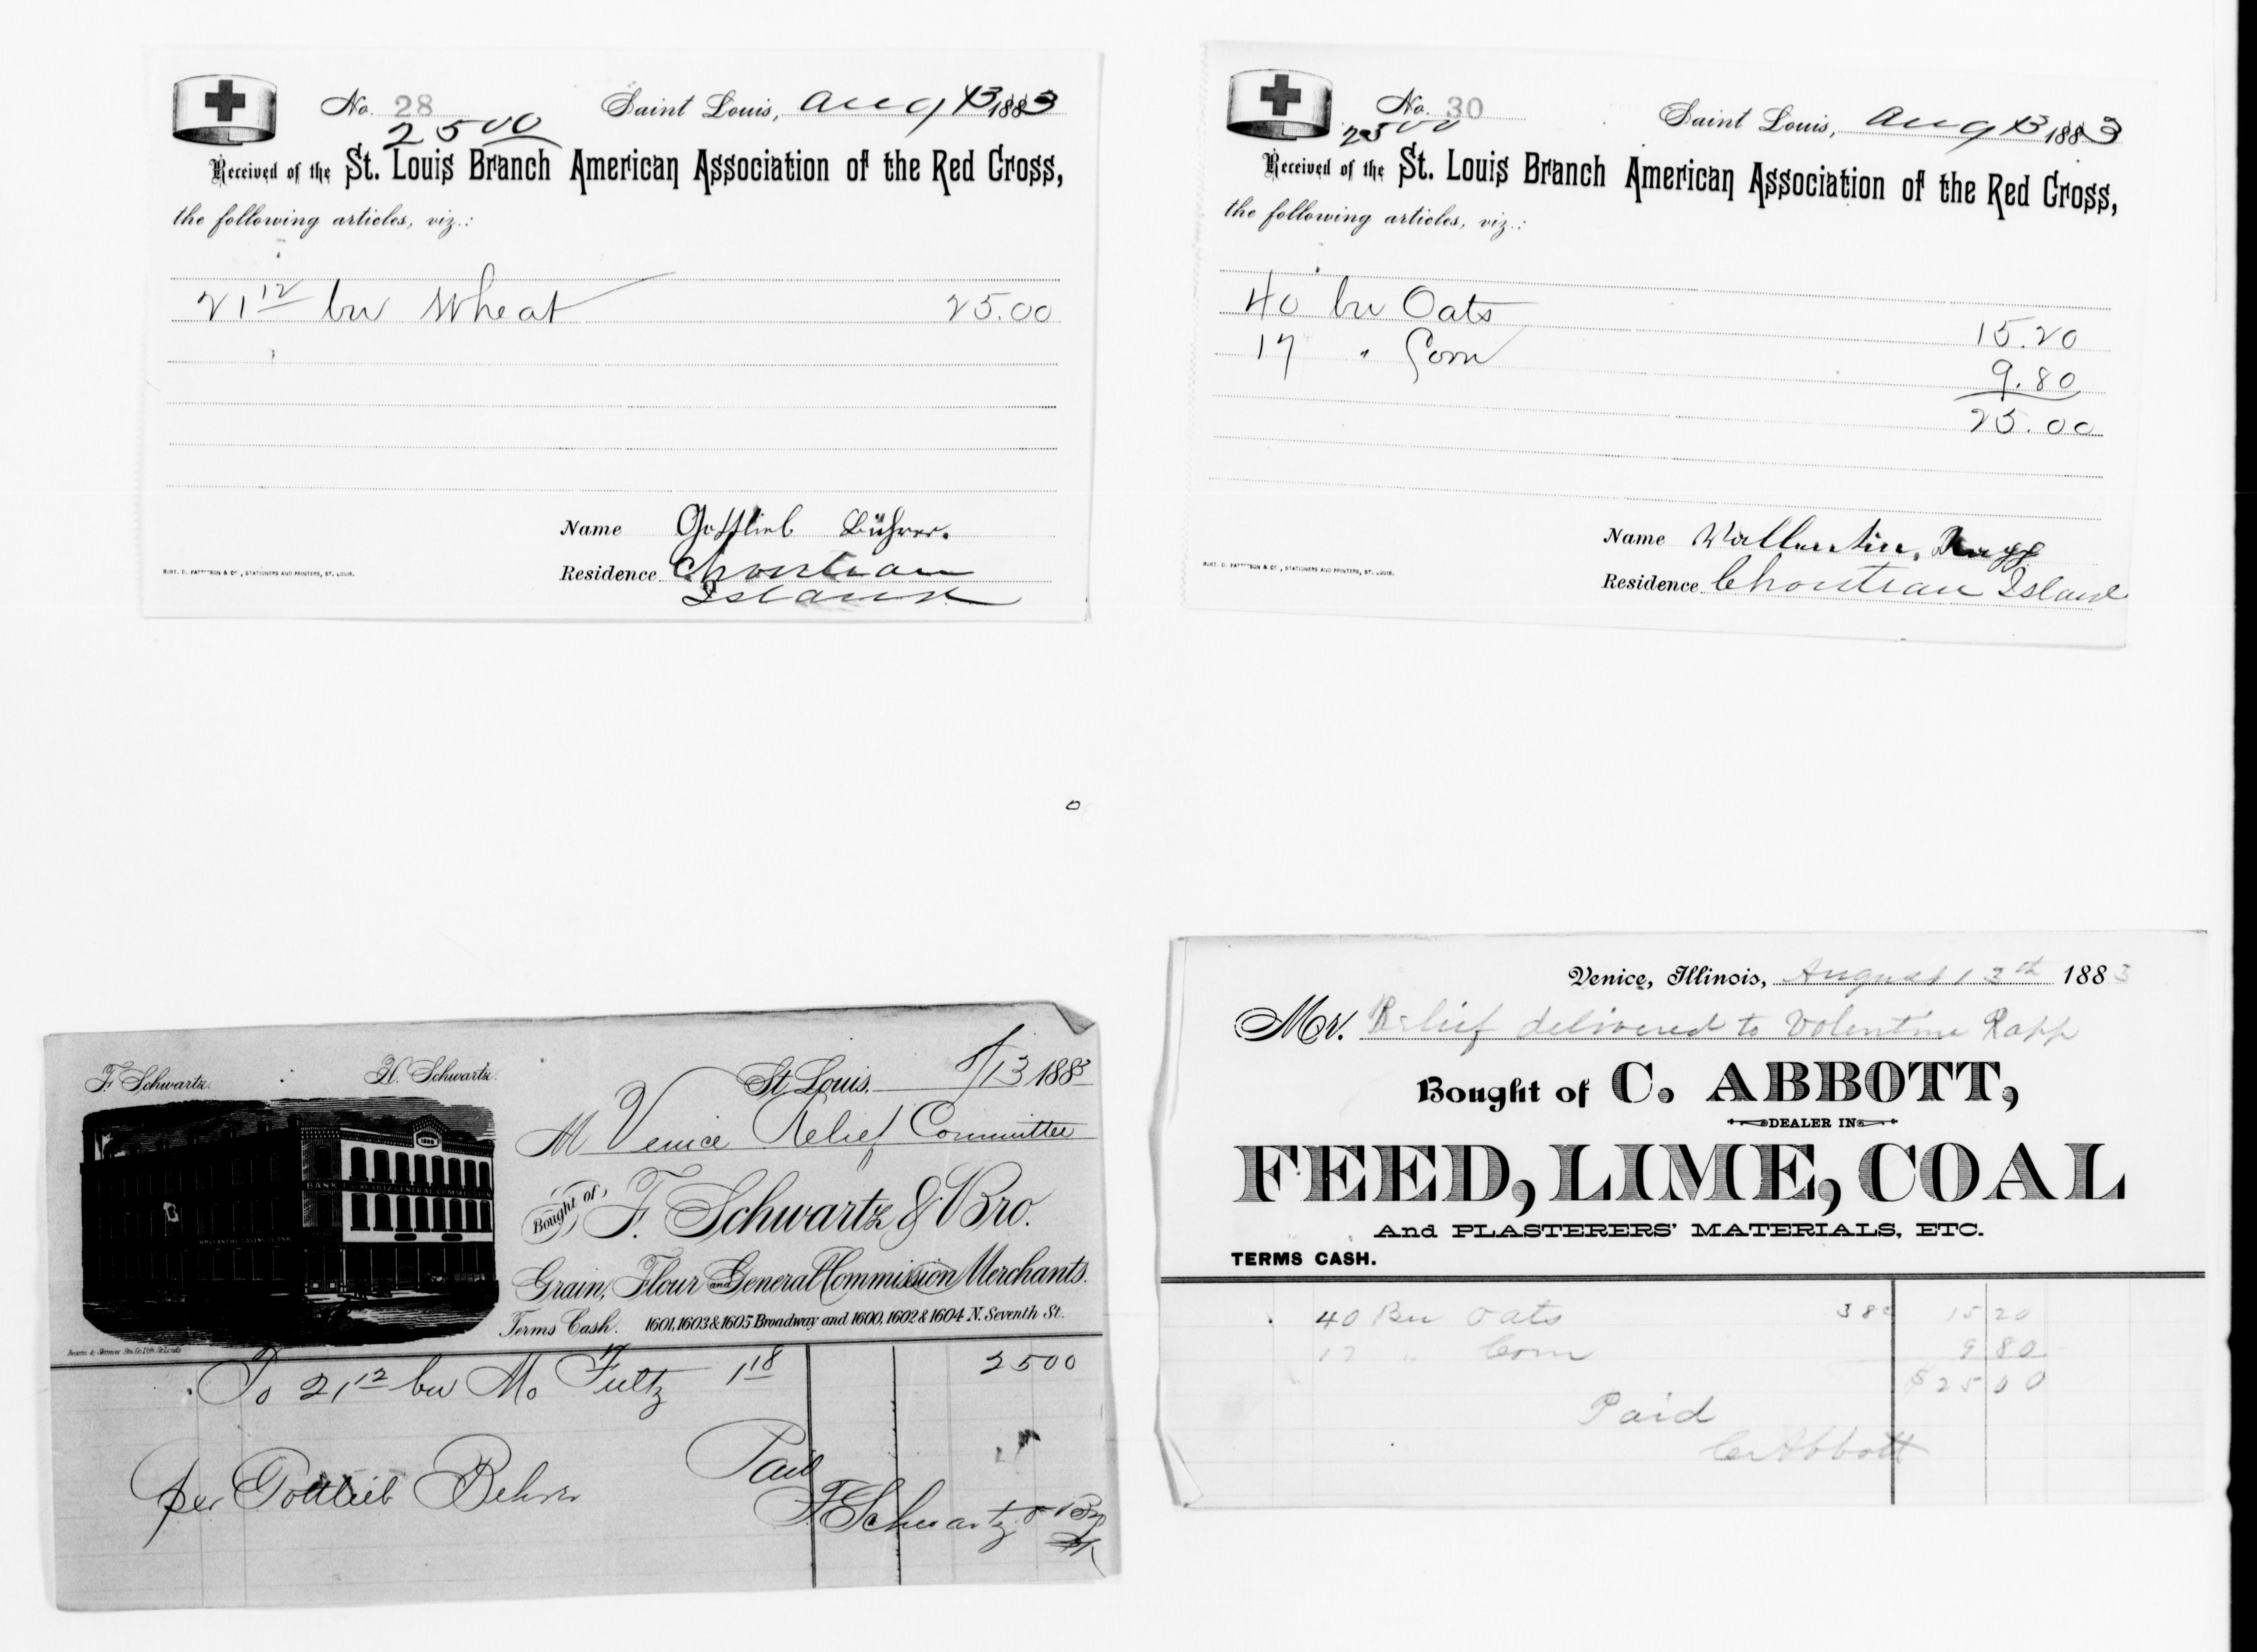 No. 28 Saint Louis, Aug 13 1883
25 00
Received of the St. Louis Branch American Association of the Red Cross,
the following articles, viz.:
21 12 bu Wheat 25.00
Name Gottlieb Bührer.
Residence Chouteau
Island
BURT. D. PATTERSON & CO., STATIONERS AND PRINTERS, ST. LOUIS.
No. 30 Saint Louis, Aug 13 1883
25 00
Received of the St. Louis Branch American Association of the Red Cross,
the following articles, viz.:
40 bu Oats 15.20
17 " Corn 9.80
25.00
Name Wallentin,
Residence Chouteau Island
BURT. D. PATTERSON & CO., STATIONERS AND PRINTERS, ST. LOUIS.
F. Schwartz. H. Schwartz.
St Louis, 8/13 1883
M Venice Relief Committee
Bought of F. Schwartz & Bro.
Grain, Flour and General Commission Merchants.
Terms Cash. 1601, 1603 & 1605 Broadway and 1600, 1602 & 1604 N. Seventh St.
BANK
To 21 12 bu Mo Fultz 1 18 25 00
per Gottlieb Behrer Paid
F Schwartz & Bro
Venice, Illinois, August 13th 1883
Mr. Relief delivered to Volentine Rapp
Bought of C. ABBOTT,
DEALER IN
FEED, LIME, COAL
And PLASTERERS' MATERIALS, ETC.
TERMS CASH.
40 Bu Oats 38c 15 20
17 " Corn 9 80
$ 25 00
Paid
C Abbott